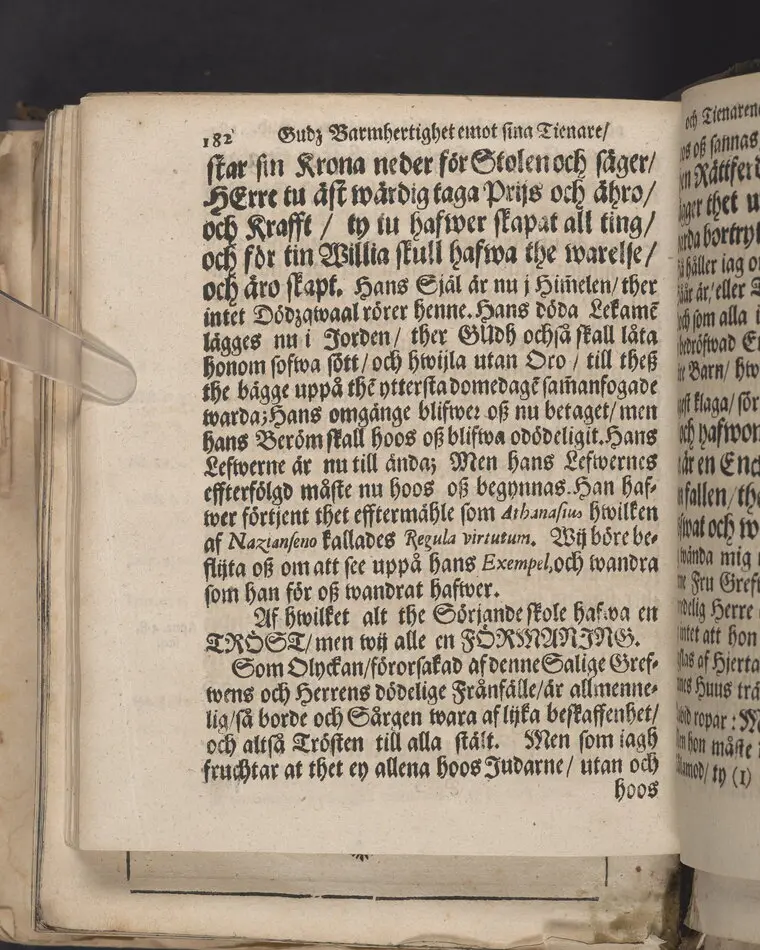 182 Gudz Barmhertighet emot sina Tienare/
star sin Krona neder för Stolen och säger/
HErre tu äst wärdig taga Prijs och ähro/
och Krafft / ty tu hafwer skapat all ting/
och för tin Willia skull hafwa the warelse/
och äro skapt. Hans Själ är nu j Him̄elen/ ther
intet Dödzqwaal rörer henne. Hans döda Lekamē
lägges nu i Jorden/ ther GUdh ochså skall låta
honom sofwa sött/ och hwijla utan Oro / till theß
the bägge uppå thē yttersta domedagē sam̄anfogade
warda; Hans omgänge blifwer oß nu betaget/ men
hans Beröm skall hoos oß blifwa odödeligit. Hans
Lefwerne är nu till ända; Men hans Lefwernes
effterfölgd måste nu hoos oß begynnas. Han haf-
wer förtjent thet efftermähle som Athanasius hwilken
af Nazianseno kallades Regula virtutum. Wij böre be-
flijta oß om att see uppå hans Exempel, och wandra
som han för oß wandrat hafwer.
Af hwilket alt the Sörjande skole hafwa en
TRÖST/ men wij alle en FÖRMANING.
Som Olyckan/ förorsakad af denne Salige Gref-
wens och Herrens dödelige Frånfälle/ är allmenne-
lig/ så borde och Sårgen wara af lijka beskaffenhet/
och altså Trösten till alla stält. Men som iagh
fruchtar at thet ey allena hoos Judarne/ utan och
hoos
och Tienaren
oß sannas
en Rättferd
thet u
bortryt
håller iag
är/ eller
som alla i
bedröfwad
Barn/ hw
klaga/ för
och hafwon
är en End
fallen/ th
och w
wända mig
Fru Gref
Herre
intet att hon
af Hierta
Huus trä
ropar : M
hon måste
ty (1)